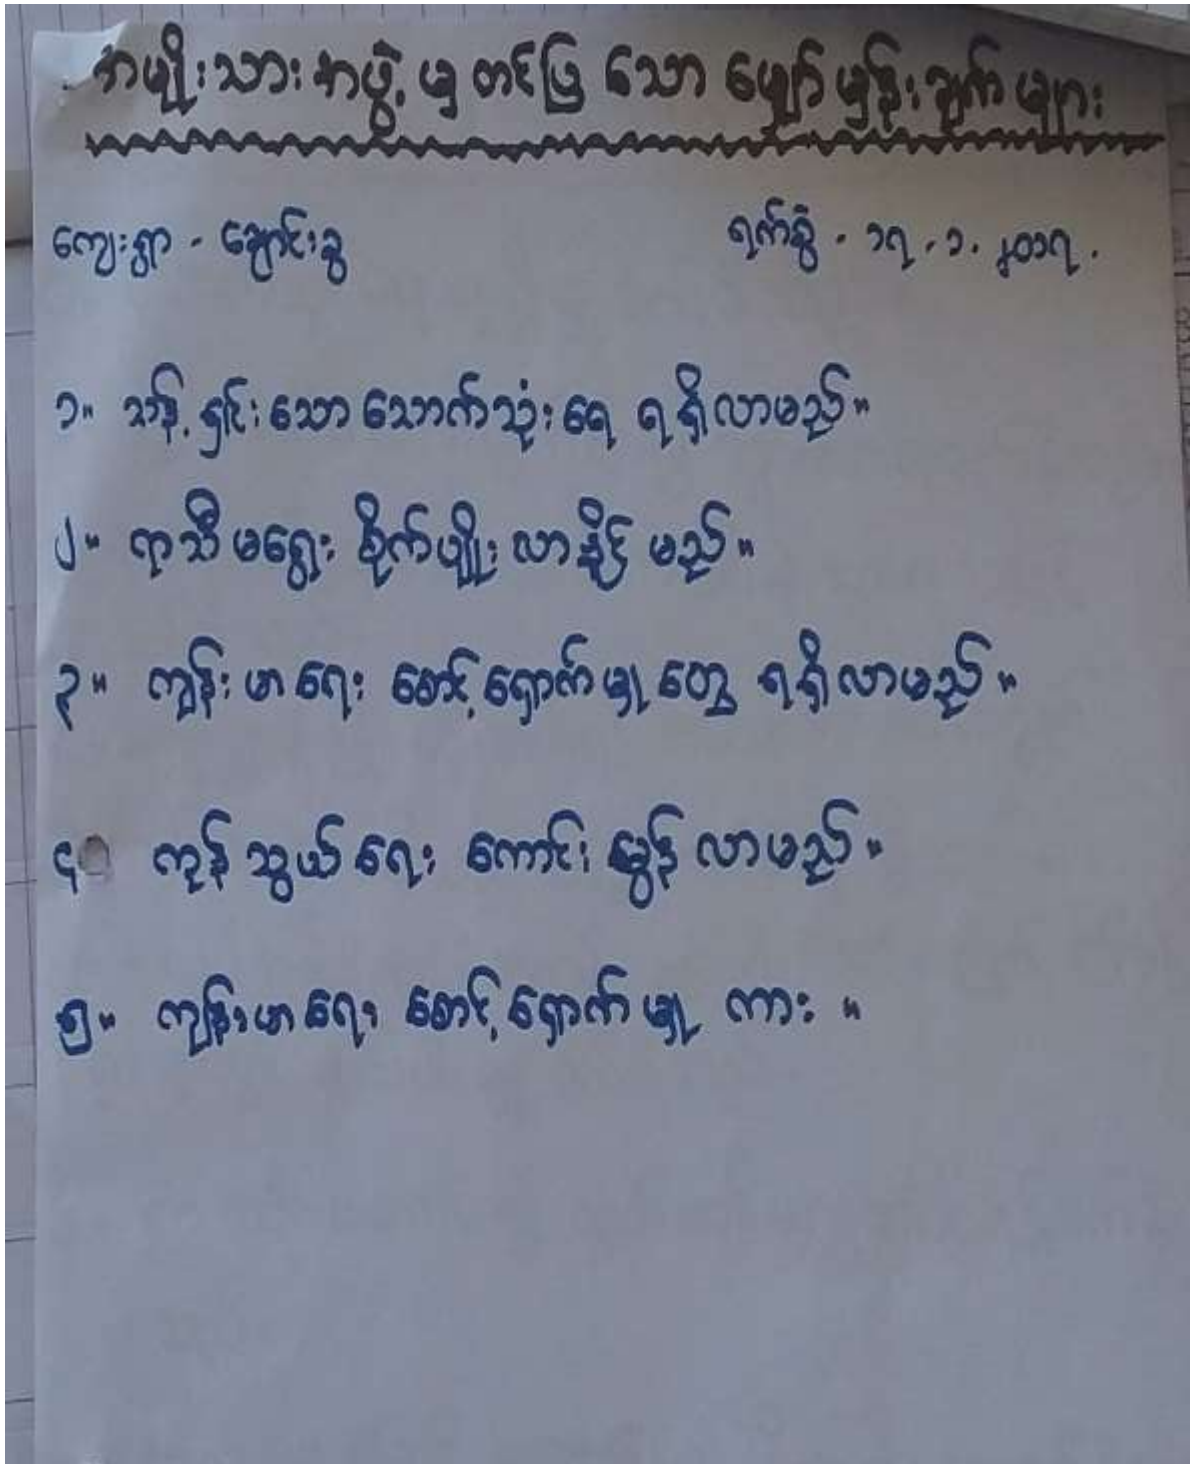 အမျိုးသားအဖွဲ့မှ တင်ပြသော မျှော်မှန်းချက်များ
ကျေးရွာ - ချောင်းခွ ရက်စွဲ - ၁၇.၁.၂၀၁၇.
၁။ သန့်ရှင်းသော သောက်သုံးရေ ရရှိလာမည်။
၂။ ရာသီမရွေး စိုက်ပျိုးလာနိုင်မည်။
၃။ ကျန်းမာရေး စောင့်ရှောက်မှုတွေ ရရှိလာမည်။
၄။ ကုန်သွယ်ရေး ကောင်းမွန်လာမည်။
၅။ ကျန်းမာရေး စောင့်ရှောက်မှု ကား ။